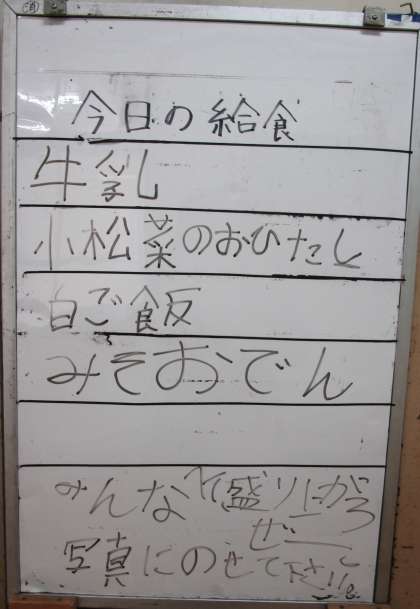 今日の給食
牛乳
小松菜のおひたし
白ご飯
みそおでん
みんなで盛り上がろ
ぜー
写真にのせて下さい!!